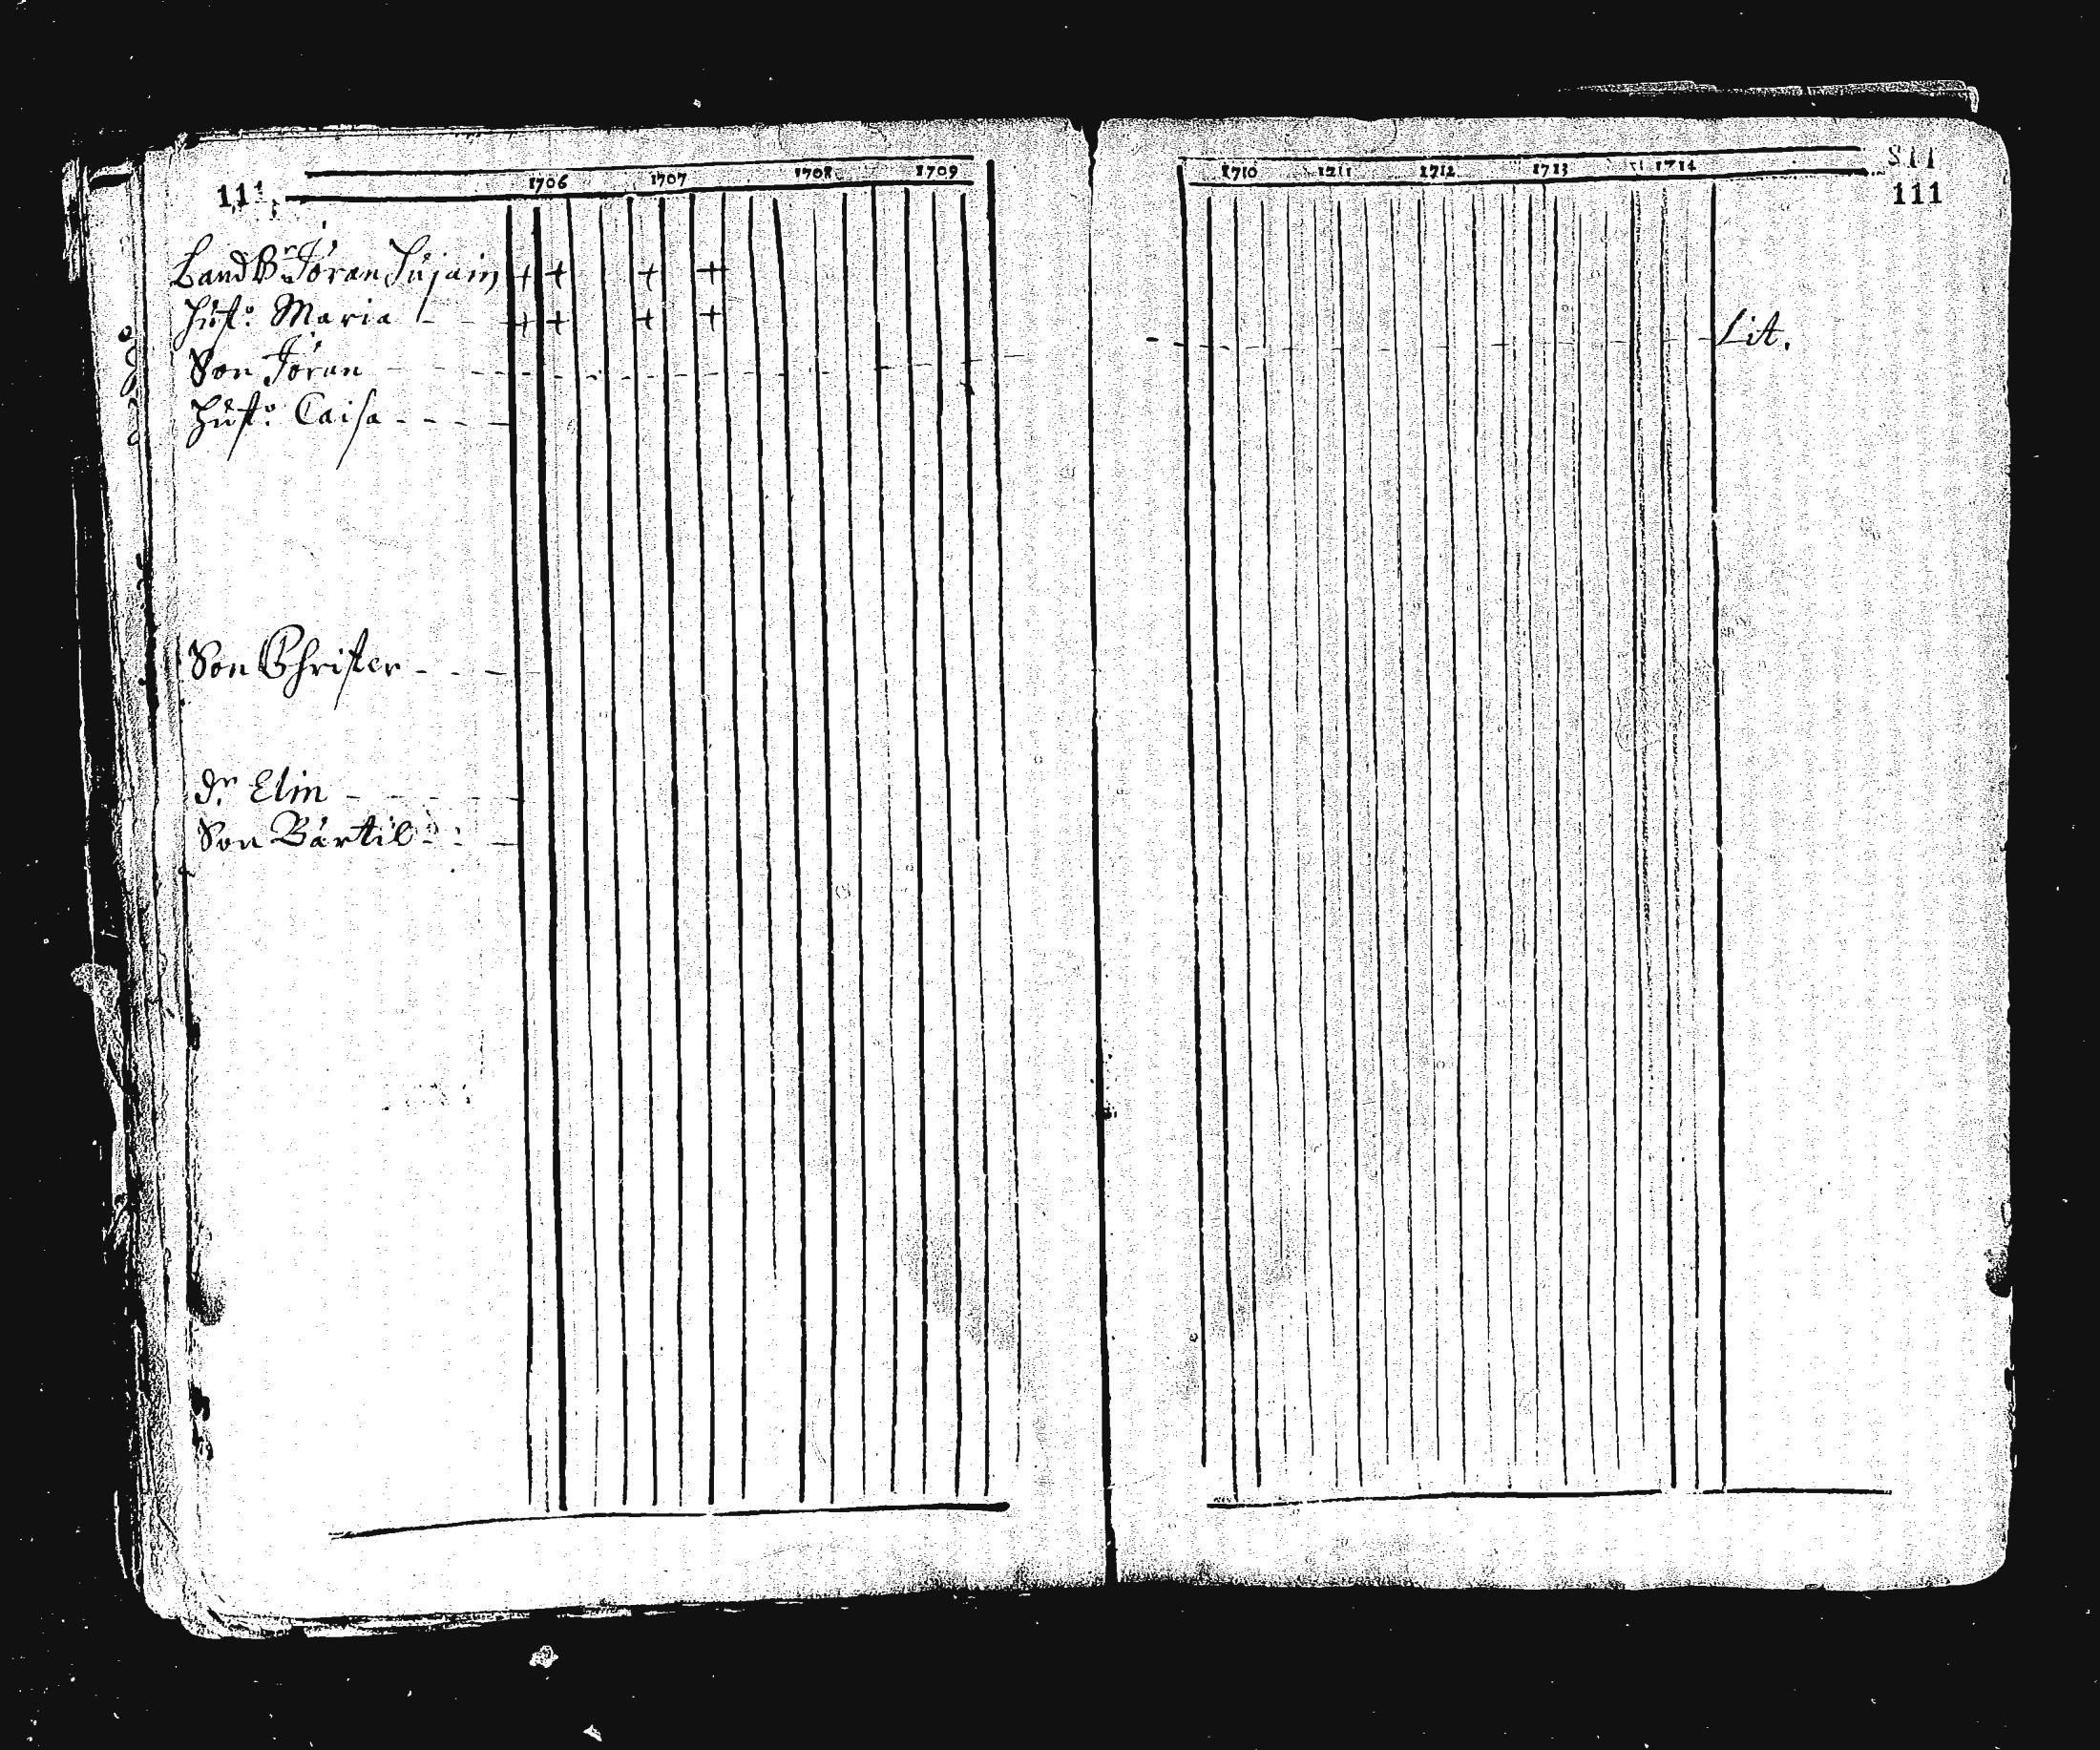 111
1706 1707 1708 1709
Land B:r Jöran Jusain + + + +
Hust: Maria + + + +
Son Jöran
Hust: Caisa
Son Christer
d:r Elin
Son Bärtil
1710 1711 1712 1713 1714
111
Lit.